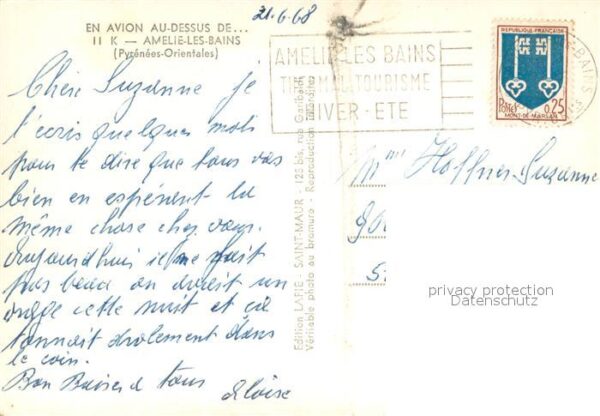 21-6-68
EN AVION AU-DESSUS DE...
11 K — AMELIE-LES-BAINS
(Pyrénées-Orientales)
Chère Suzanne je
t'écris quelques mots
pour te dire que tous vas
bien en espérent la
même chose chez vous.
Aujourd'hui il ne fait
pas beau on avait un
orage cette nuit et ça
tonnait drolement dans
le coin.
Bon Baiser à tous
Eloise
Edition LAFIE - SAINT-MAUR - 125 bis, rue Garibaldi
Véritable photo au bromure - Reproduction interdite
AMELIE LES BAINS
TOURISME
HIVER-ETE
REPUBLIQUE FRANÇAISE
POSTES 0,25
MONT-DE-MARSAN
E-BAINS
Mme Hoffner Suzanne
privacy protection
Datenschutz